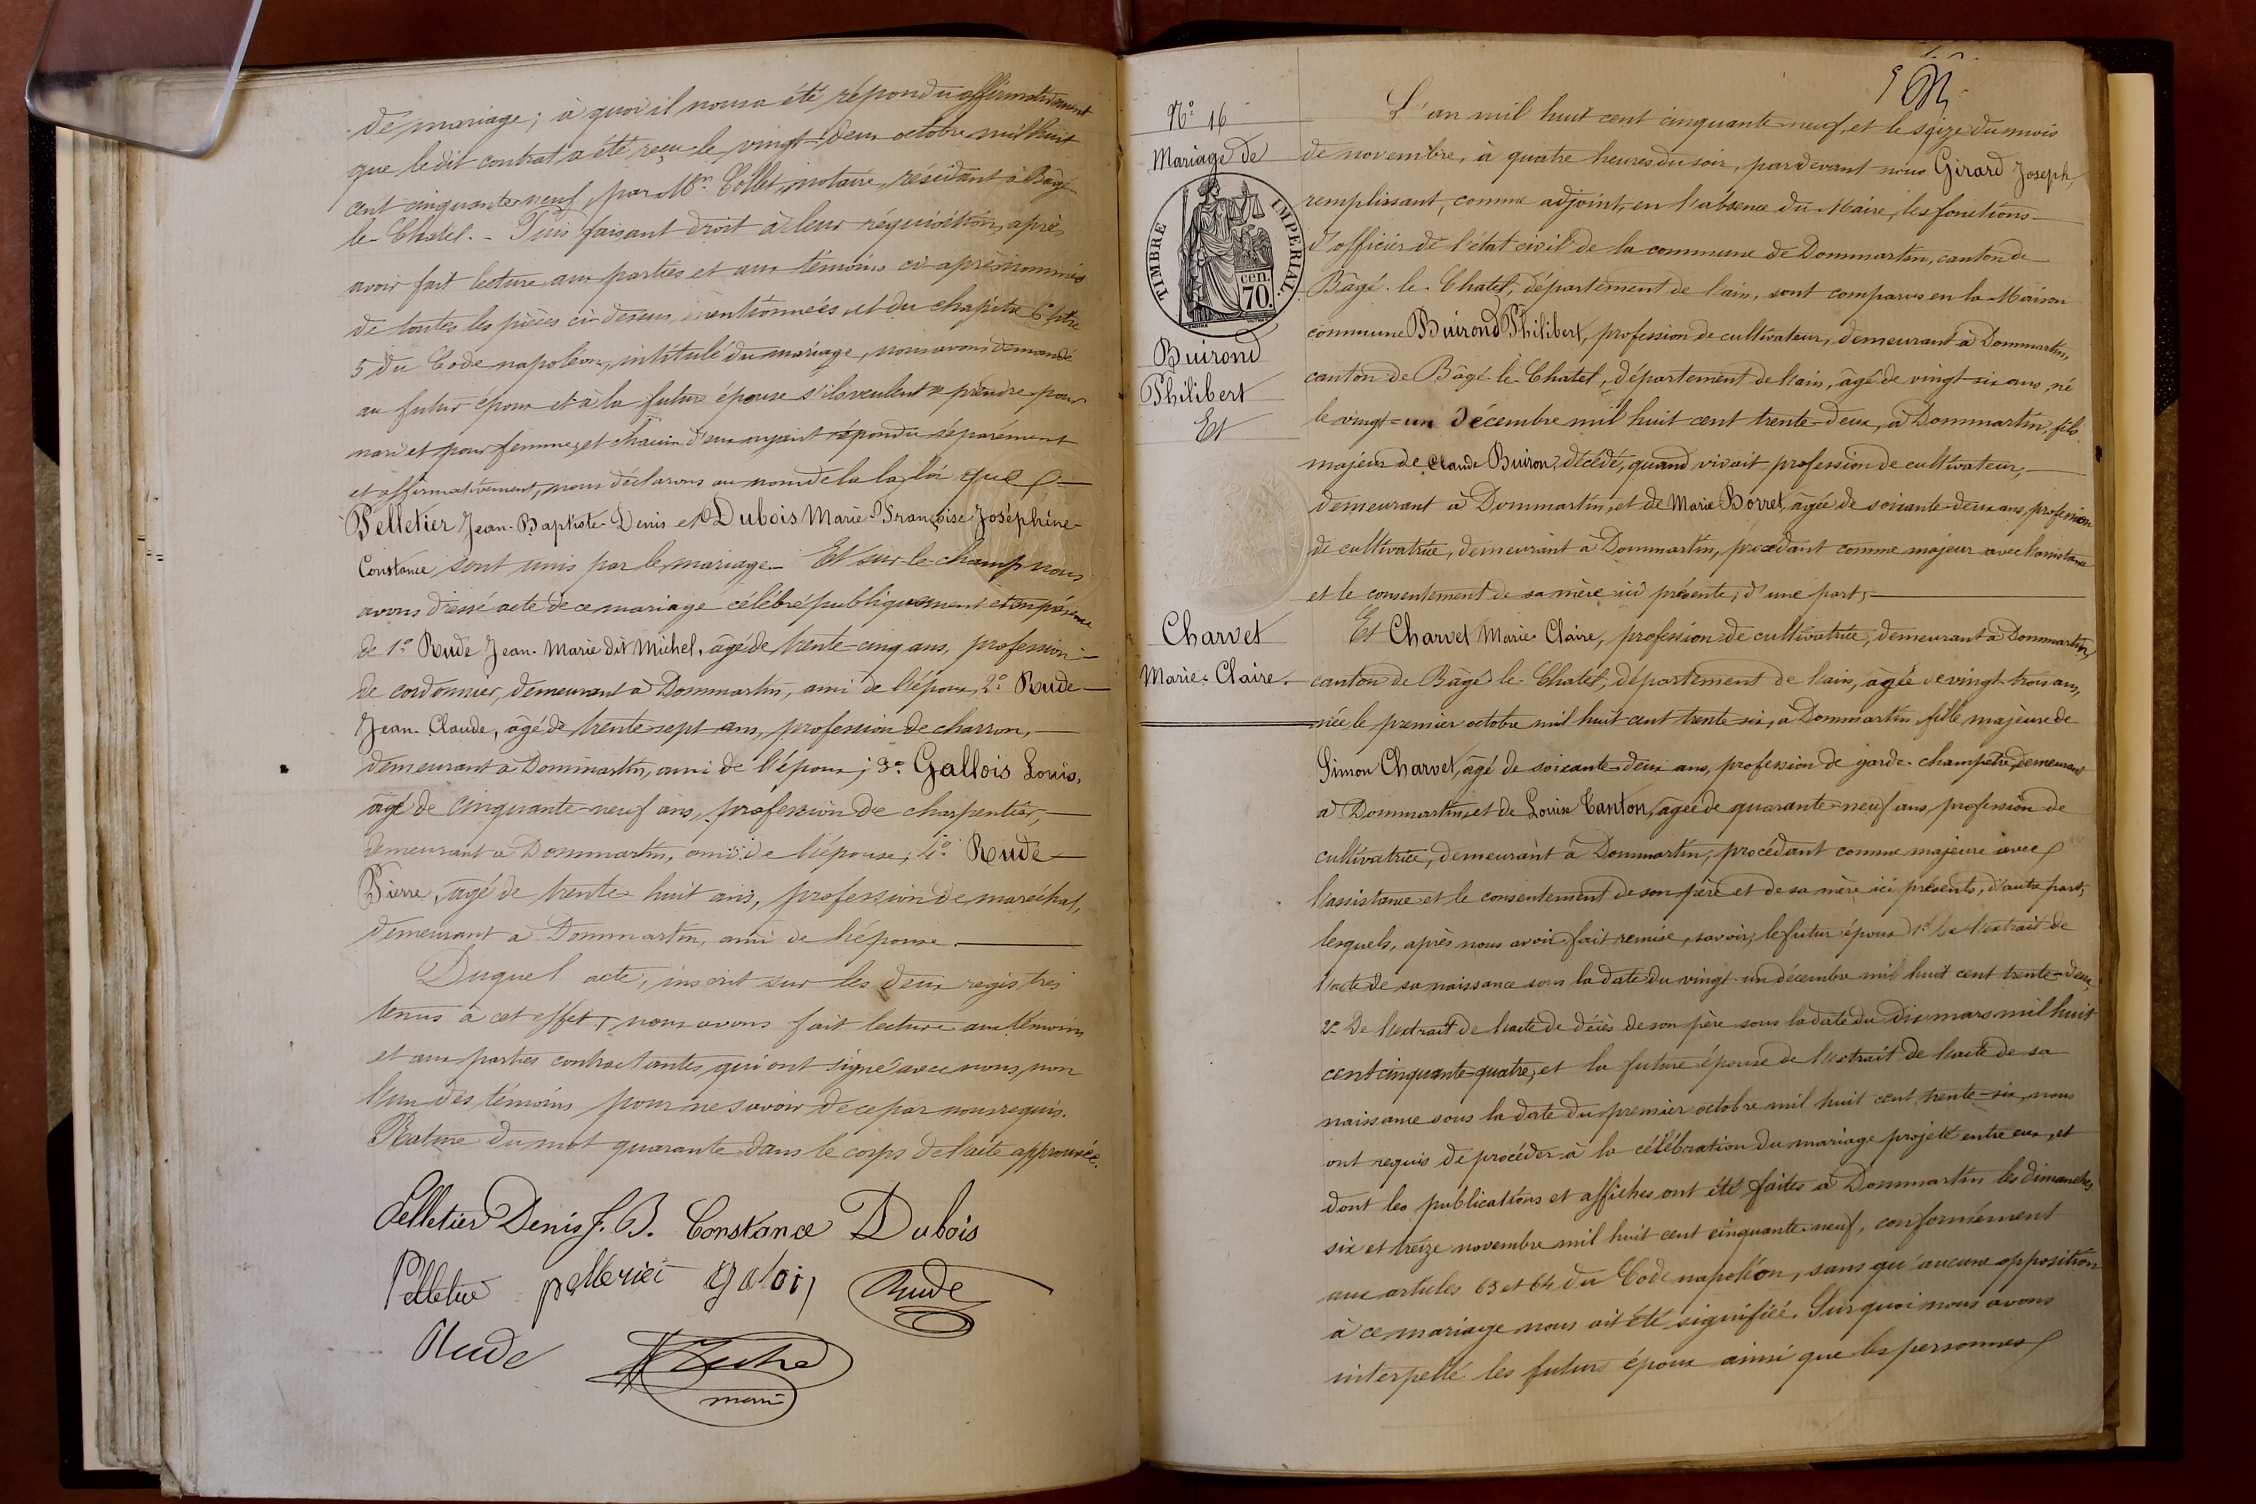 de mariage; à quoi il nous a été répondu affirmativement
que le dit contrat a été reçu le vingt-deux octobre mil huit
cent cinquante-neuf, par Mᵉ Collet, notaire, résidant à Bâgé-
le-Chatel. - Puis faisant droit à leur réquisition, après
avoir fait lecture aux parties et aux témoins ci-après nommés
de toutes les pièces ci-dessus mentionnées et du chapitre 6 titre
5 du Code napoléon, intitulé du mariage, nous avons demandé
au futur époux et à la future épouse s'ils veulent se prendre pour
mari et pour femme, et chacun d'eux ayant répondu séparément
et affirmativement, nous déclarons au nom de la la loi que
Pelletier Jean-Baptiste-Denis et Dubois Marie-Françoise-Joséphine-
Constance sont unis par le mariage. Et sur-le-champ nous
avons dressé acte de ce mariage célébré publiquement et en présence
de 1º Rude Jean-Marie dit Michel, âgé de trente-cinq ans, profession
de cordonnier, demeurant à Dommartin, ami de l'époux, 2º Rude
Jean-Claude, âgé de trente-sept ans, profession de charron,
demeurant à Dommartin, ami de l'époux; 3º Gallois Louis,
âgé de cinquante-neuf ans, profession de charpentier,
demeurant à Dommartin, ami de l'épouse; 4º Rude
Pierre, âgé de trente-huit ans, profession de maréchal,
demeurant à Dommartin, ami de l'épouse.
Duquel acte, inscrit sur les deux registres
tenus à cet effet, nous avons fait lecture aux témoins
et aux parties contractantes qui ont signé avec nous, non
l'un des témoins pour ne savoir de ce par nous requis.
Rature du mot quarante dans le corps de l'acte approuvée.
Pelletier Denis J. B. Constance Dubois
Pelletier Rude
Rude
maire
Nº 16
Mariage de
TIMBRE IMPERIAL.
cen.
70.
Buirond
Philibert
Et
Charvet
Marie-Claire.
L'an mil huit cent cinquante-neuf, et le seize du mois
de novembre, à quatre heures du soir, pardevant nous Girard Joseph,
remplissant, comme adjoint, en l'absence du Maire, les fonctions
d'officier de l'état civil de la commune de Dommartin, canton de
Bâgé-le-Chatel, département de l'ain, sont comparus en la Maison
commune Buirond Philibert, profession de cultivateur, demeurant à Dommartin,
canton de Bâgé-le-Chatel, département de l'ain, âgé de vingt-six ans, né
le vingt-un décembre mil huit cent trente-deux, à Dommartin, fils
majeur de Claude Buiron, décédé, quand vivait profession de cultivateur,
demeurant à Dommartin, et de Marie Borret, âgée de soixante-deux ans, profession
de cultivatrice, demeurant à Dommartin, procédant comme majeur avec l'assistance
et le consentement de sa mère ici présente, d'une part;
Et Charvet Marie-Claire, profession de cultivatrice, demeurant à Dommartin,
canton de Bâgé-le-Chatel, département de l'ain, âgée de vingt-trois ans,
née le premier octobre mil huit cent trente-six, à Dommartin, fille majeure de
Simon Charvet, âgé de soixante-deux ans, profession de garde-champêtre, demeurant
à Dommartin, et de Louise Canton, âgée de quarante-neuf ans, profession de
cultivatrice, demeurant à Dommartin; procédant comme majeure avec
l'assistance et le consentement de son père et de sa mère ici présents, d'autre part;
lesquels, après nous avoir fait remise, savoir, le futur époux 1º De l'extrait de
l'acte de sa naissance sous la date du vingt-un décembre mil huit cent trente-deux,
2º De l'extrait de l'acte de décès de son père sous la date du dix mars mil huit
cent cinquante-quatre, et la future épouse de l'extrait de l'acte de sa
naissance sous la date du premier octobre mil huit cent trente-six, nous
ont requis de procéder à la célébration du mariage projeté entre eux, et
dont les publications et affiches ont été faites à Dommartin les dimanches
six et treize novembre mil huit cent cinquante-neuf, conformément
aux articles 63 et 64 du Code napoléon, sans qu'aucune opposition
à ce mariage nous ait été signifiée. Sur quoi nous avons
interpellé les futurs époux ainsi que les personnes